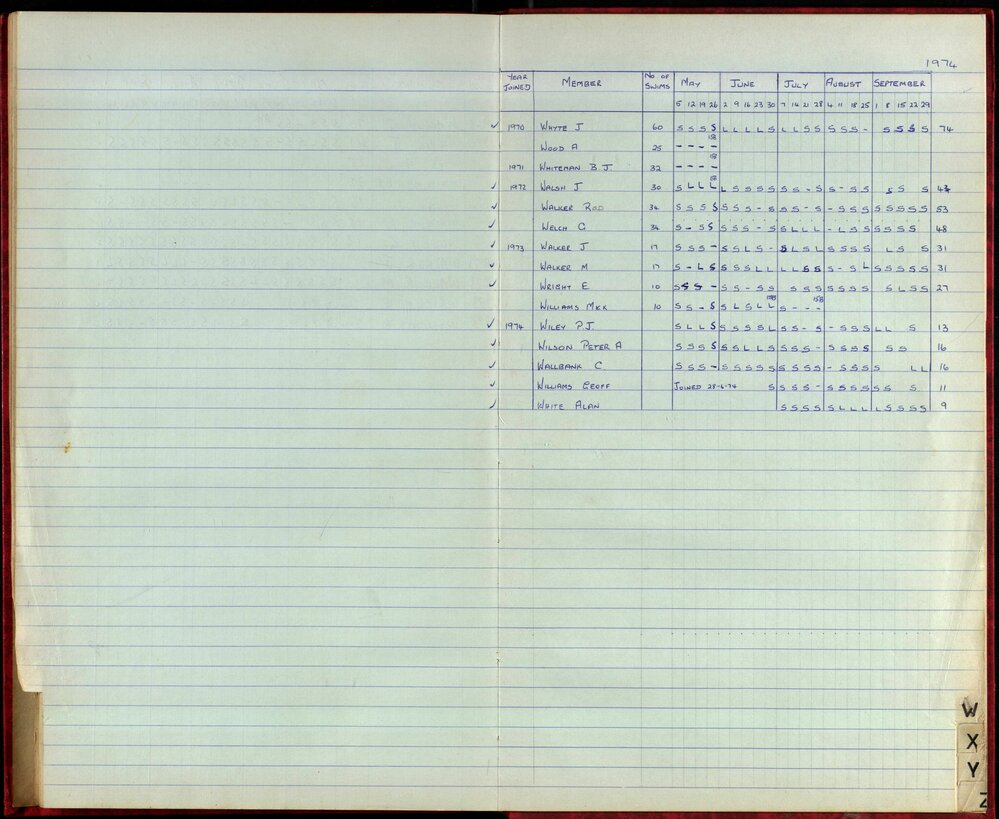 1974
YEAR JOINED MEMBER NO. OF SWIMS MAY JUNE JULY AUGUST SEPTEMBER
5 12 19 26 2 9 16 23 30 7 14 21 28 4 11 18 25 1 8 15 22 29
✓ 1970 WHYTE J 60 S S S S L L L L S L L S S S S S - S S S S 74
WOOD A 25 - - - -
1971 WHITEMAN B.J. 32 - - - -
✓ 1972 WALSH J 30 S L L L L S S S S S S - S S - S S S S S
✓ WALKER ROD 34 S S S S S S S - S S S - S - S S S S S S S S 53
✓ WELCH G 34 S - S S S S S - S S L L L - L S S S S S S 48
✓ 1973 WALKER J 17 S S S - S S L S - S L S L S S S S L S S 31
✓ WALKER M 17 S - L S S S S L L L L S S S - S L S S S S S 31
✓ WRIGHT E 10 S S S - S S - S S S S S S S S S S L S S 27
WILLIAMS MICK 10 S S - S S L S L L S - - -
✓ 1974 WILEY P.J. S L L S S S S S L S S - S - S S S L L S 13
✓ WILSON PETER A S S S S S S L L S S S S - S S S S S S 16
✓ WALLBANK C. S S S - S S S S S S S S S - S S S S L L 16
✓ WILLIAMS GEOFF JOINED 28-6-74 S S S S - S S S S S S S 11
✓ WHITE ALAN S S S S S L L L L S S S S 9
W
X
Y
Z